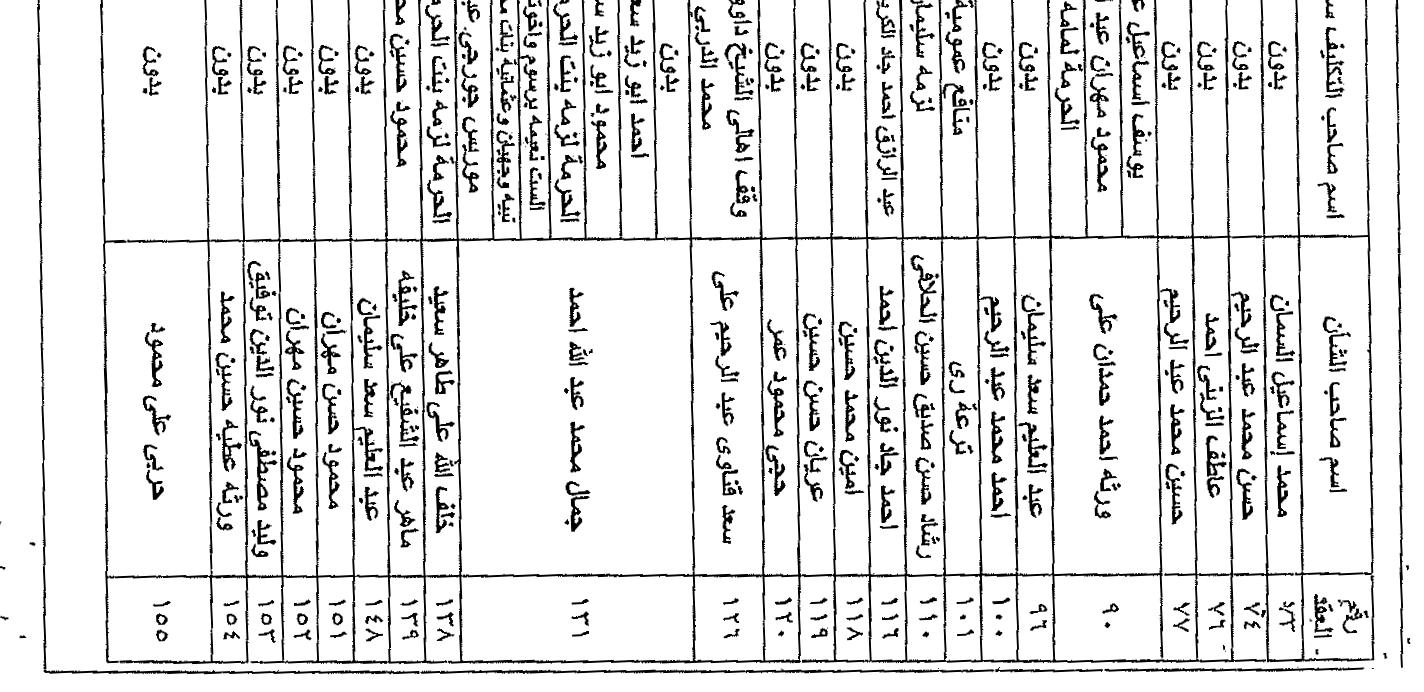 رقم العقد	اسم صاحب الشأن	اسم صاحب التكليف
٧٣	محمد إسماعيل السمان	بدون
٧٤	حسن محمد عبد الرحيم	بدون
٧٦	عاطف الزينى احمد	بدون
٧٧	حسين محمد عبد الرحيم	بدون
٩٠	ورثه احمد حمدان على	يوسف اسماعيل
محمود مهران عبد
الحرمة لمامه
٩٦	عبد العليم سعد سليمان	بدون
١٠٠	احمد محمد عبد الرحيم	بدون
١٠١	ترعة رى	منافع عمومية
١١٠	رشاد حسن صديق حسين الحلافى	لزمه سليمان
١١٦	احمد جاد نور الدين احمد	عبد الرازق احمد جاد الكري
١١٨	امين محمد حسين	بدون
١١٩	عريان حسن حسين	بدون
١٢٠	حجى محمود عمر	بدون
١٢٦	سعد قناوى عبد الرحيم على	وقف اهالى الشيخ داوو
محمد الدربي
١٣١	جمال محمد عبد الله احمد	بدون
احمد ابو زيد سع
محمود ابو زيد س
الحرمة لزمه بنت الحر
الست نعيمه برسوم واخوت
نبيه وجهان وعثمانية بنات
موريس جورجي
١٣٨	خلف الله على طاهر سعيد	الحرمة لزمه بنت الحرم
١٣٩	ماهر عبد الشفيع على خليفه	محمود حسين مح
١٤٨	عبد العليم سعد سليمان	بدون
١٥١	محمود حسن مهران	بدون
١٥٢	محمود حسين مهران	بدون
١٥٣	وليد مصطفى نور الدين توفيق	بدون
١٥٤	ورثه عطيه حسين محمد	بدون
١٥٥	حربى على محمود	بدون